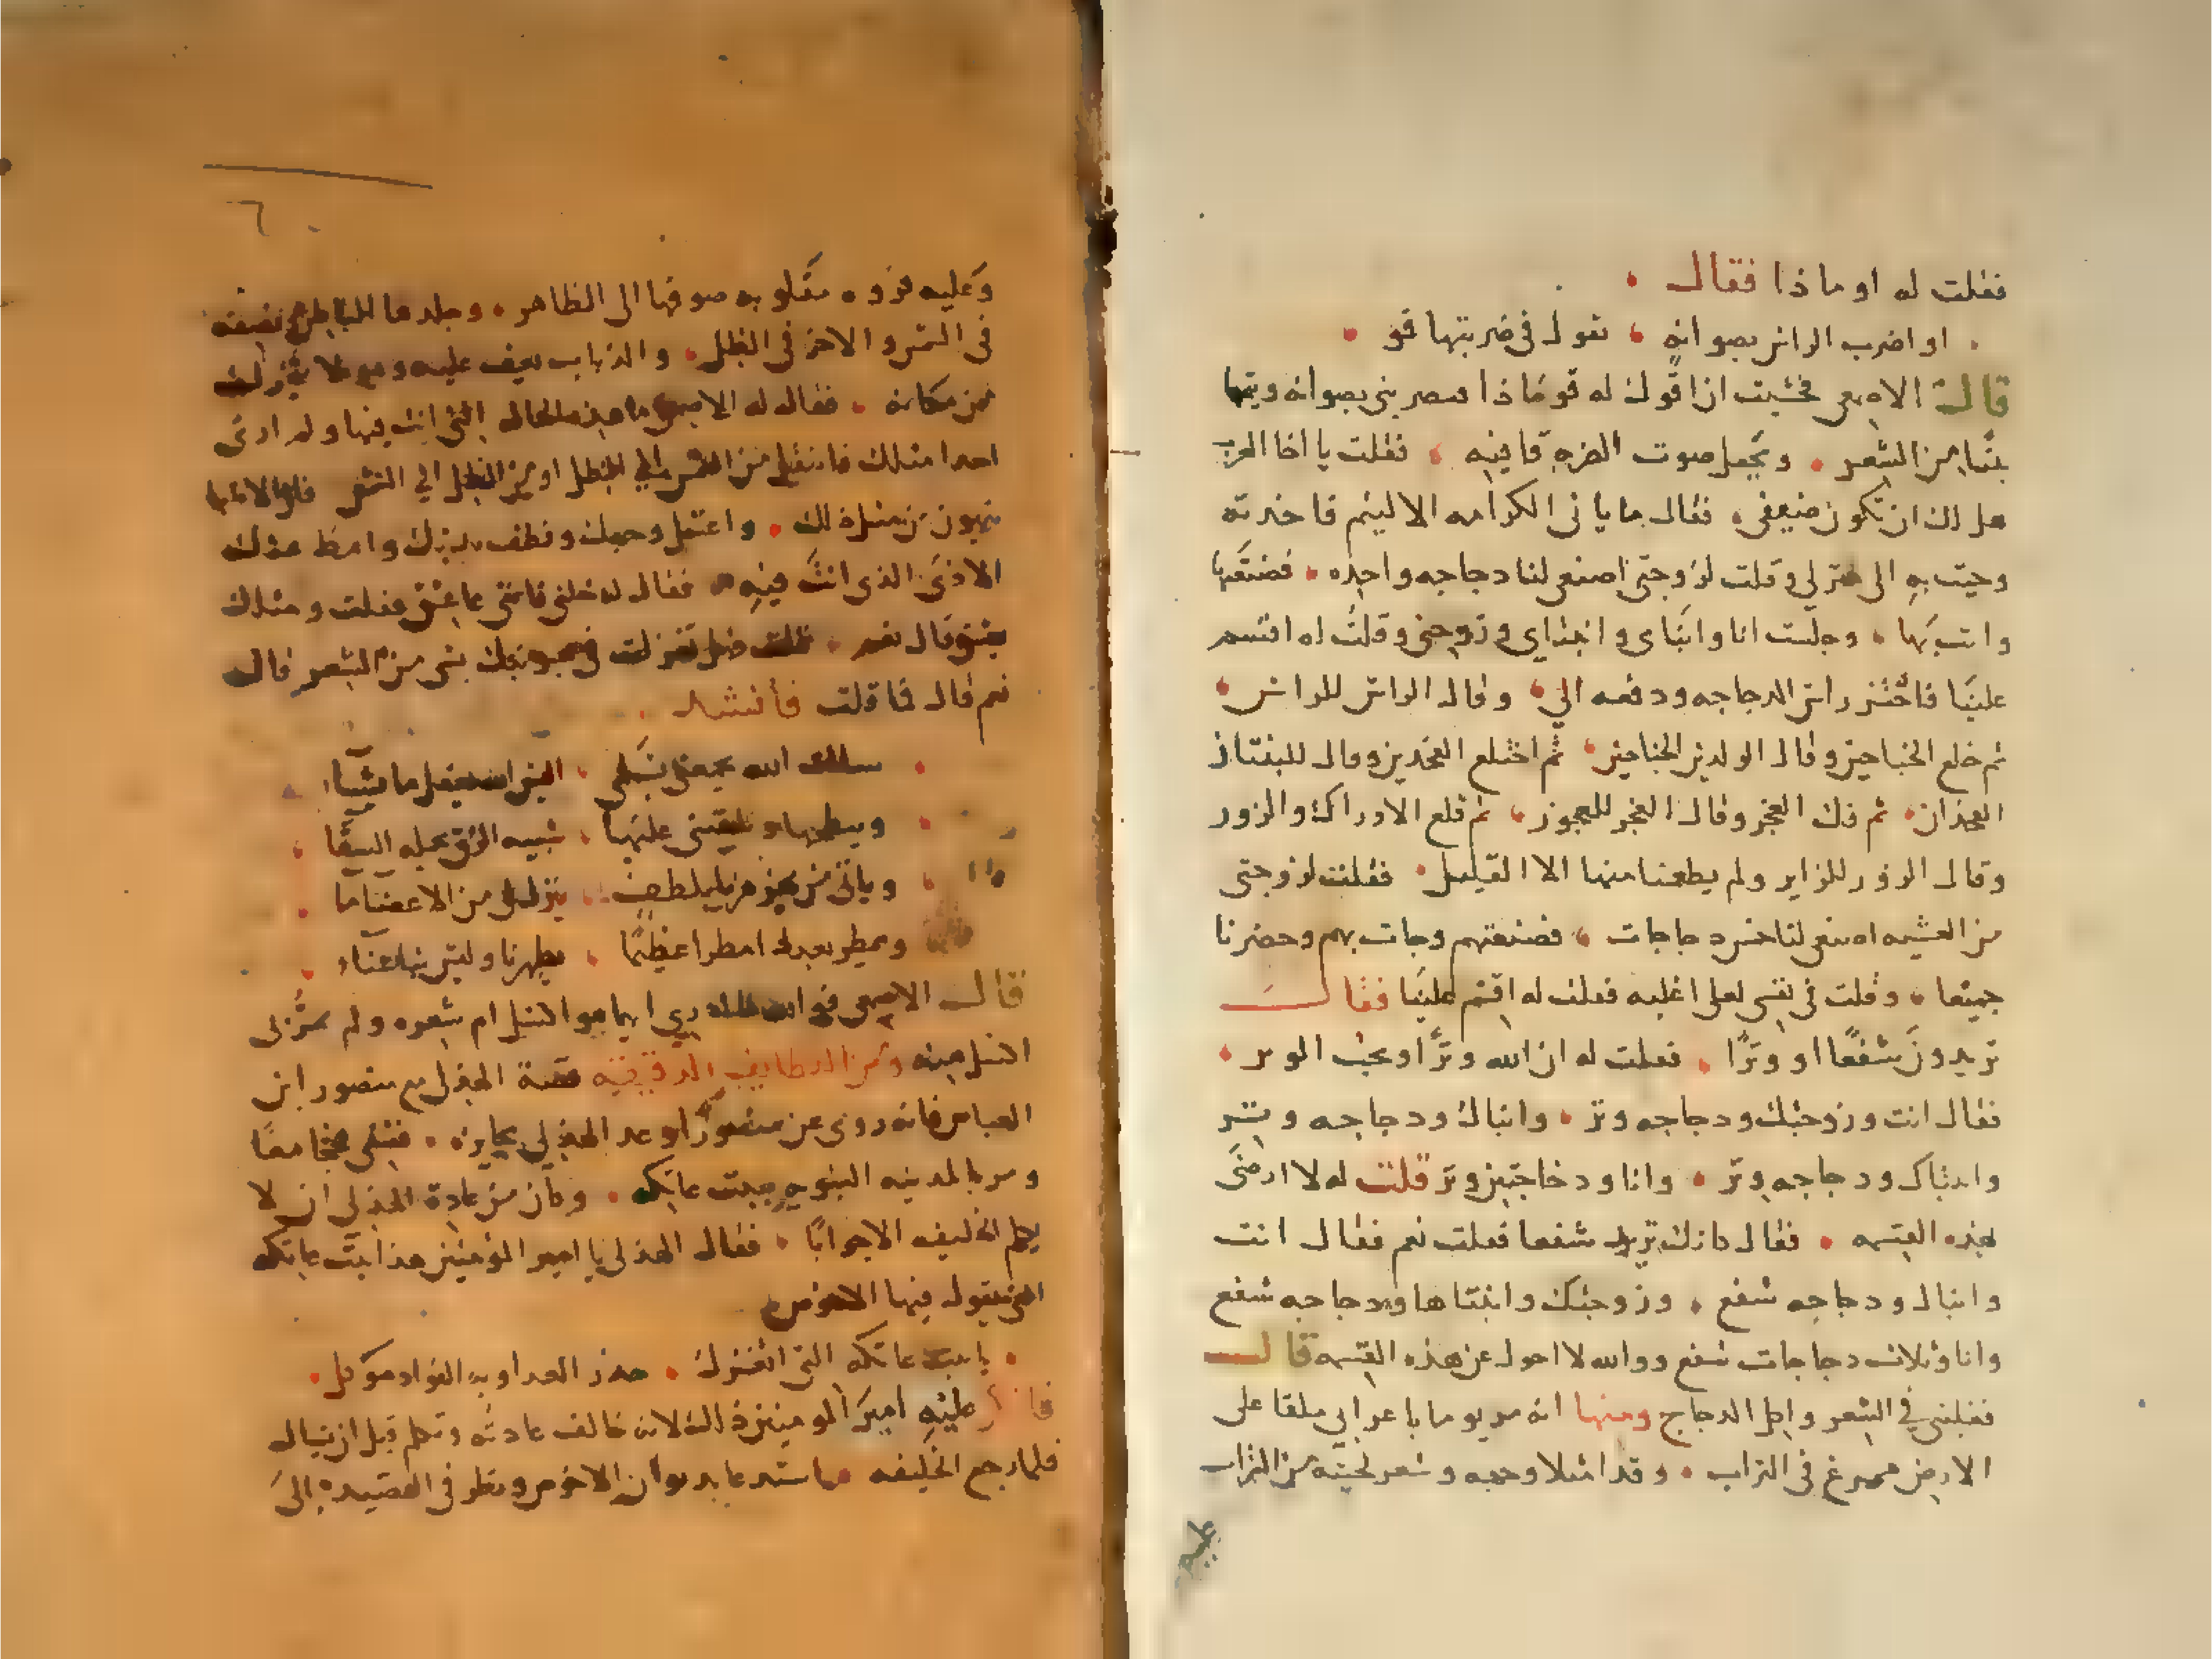 فقلت له او ماذا فقال
او اضرب الراس بصوانه نقول في ضربتها قو
قال الاصمعي فخشيت ان اقول له قو ماذا فيضربني بصوانه ويتمها
بيتا من الشعر ويجعل صوت الضربه قافيه فقلت يا اخا العرب
هل لك ان تكون ضيفي فقال ما يابى الكرامه الا لئيم فاخدته
وجيت به الى منزلي وقلت لزوجتي اصنعي لنا دجاجه واحده فصنعتها
واتت بها وجلست انا وابناي وابنتاي وزوجتي وقلت له اقسم
علينا فاخذ راس الدجاجه ودفعه الي وقال الراس للراس
ثم خلع الجناحين وقال الولدين الجناحين ثم اختلع الفخدين وقال للبنتان
الفخدان ثم فك العجز وقال العجز للعجوز ثم قلع الاوراك والزور
وقال الزور للزاير ولم يطعنا منها الا القليل فقلت لزوجتي
من العشيه اصنعي لنا خمس دجاجات فصنعتهم وجات بهم وحضرنا
جميعا وقلت في نفسي لعلي اغلبه فقلت له اقسم علينا فقال
تريدون شفعا او وترا فقلت له ان الله وترا ويحب الوتر
فقال انت وزوجتك ودجاجه وتر وابناك ودجاجه وتر
وابنتاك ودجاجه وتر وانا ودجاجتين وتر قلت له لا ارضى
هذه القسمه فقال كانك تريد شفعا فقلت نعم فقال انت
وابناك ودجاجه شفع وزوجتك وابنتاها ودجاجه شفع
وانا وثلاث دجاجات شفع ووالله لا احول عن هذه القسمه قال
فغلبني في الشعر واكل الدجاج ومنها انه مر يوما باعرابي ملقا على
الارض ممرغ في التراب وقد امتلا وجهه وشعر لحيته من التراب
وعليه
وعليه فروه مقلوبه صوفها الى الظاهر وجلدها للباطن نصفه
في الشمس والاخر في الظل والذباب يعف عليه وهو لا يتحرك
من مكانه فقال له الاصمعي ما هذه الحاله التي انت فيها ولم ارى
احدا مثلك فانتقل من الشمس الي الظل او من الظل الي الشمس
من مثل ذلك واغتسل وجهك ونظف بدنك وامط عنك
الاذى الذي انت فيه فقال له خلني فانني عاشق فقلت ومثلك
يعشق قال نعم فقلت هل تغزلت في محبوبتك بشي من الشعر قال
نعم قال فما قلت فأنشد
سالت الله يجمعني بسلمى اليس الله يفعل ما يشاء
ويبطحها ويلقيني عليها شبيه الزق يحمله السقا
وياتي من يحركنا بلطف
ويمطر بعدها مطرا عظيما يطهرنا وليس بنا عناء
قال الاصمعي فوالله ما ادري ايهما هو اثقل ام شعره ولم
اثقل منه ومن اللطايف الدقيقه قصة الهذلي مع منصور ابن
العباس فانه روى عن منصور اوعد الهذلي بجايزه
ومر بالمدينه النبويه ببيت عاتكه وكان من عادة الهذلي ان لا
يكلم الخليفه الا جوابا فقال الهذلي يا امير المؤمنين هذا بيت عاتكه
التي يقول فيها الاحوص
يا بيت عاتكه التي اتغزل حذر العدا وبه الفواد موكل
فانكر عليه امير المومنين ذلك لانه خالف عادته وتكلم قبل ان يسال
فلما رجع الخليفه استدعا بديوان الاحوص ونظر في القصيده الى